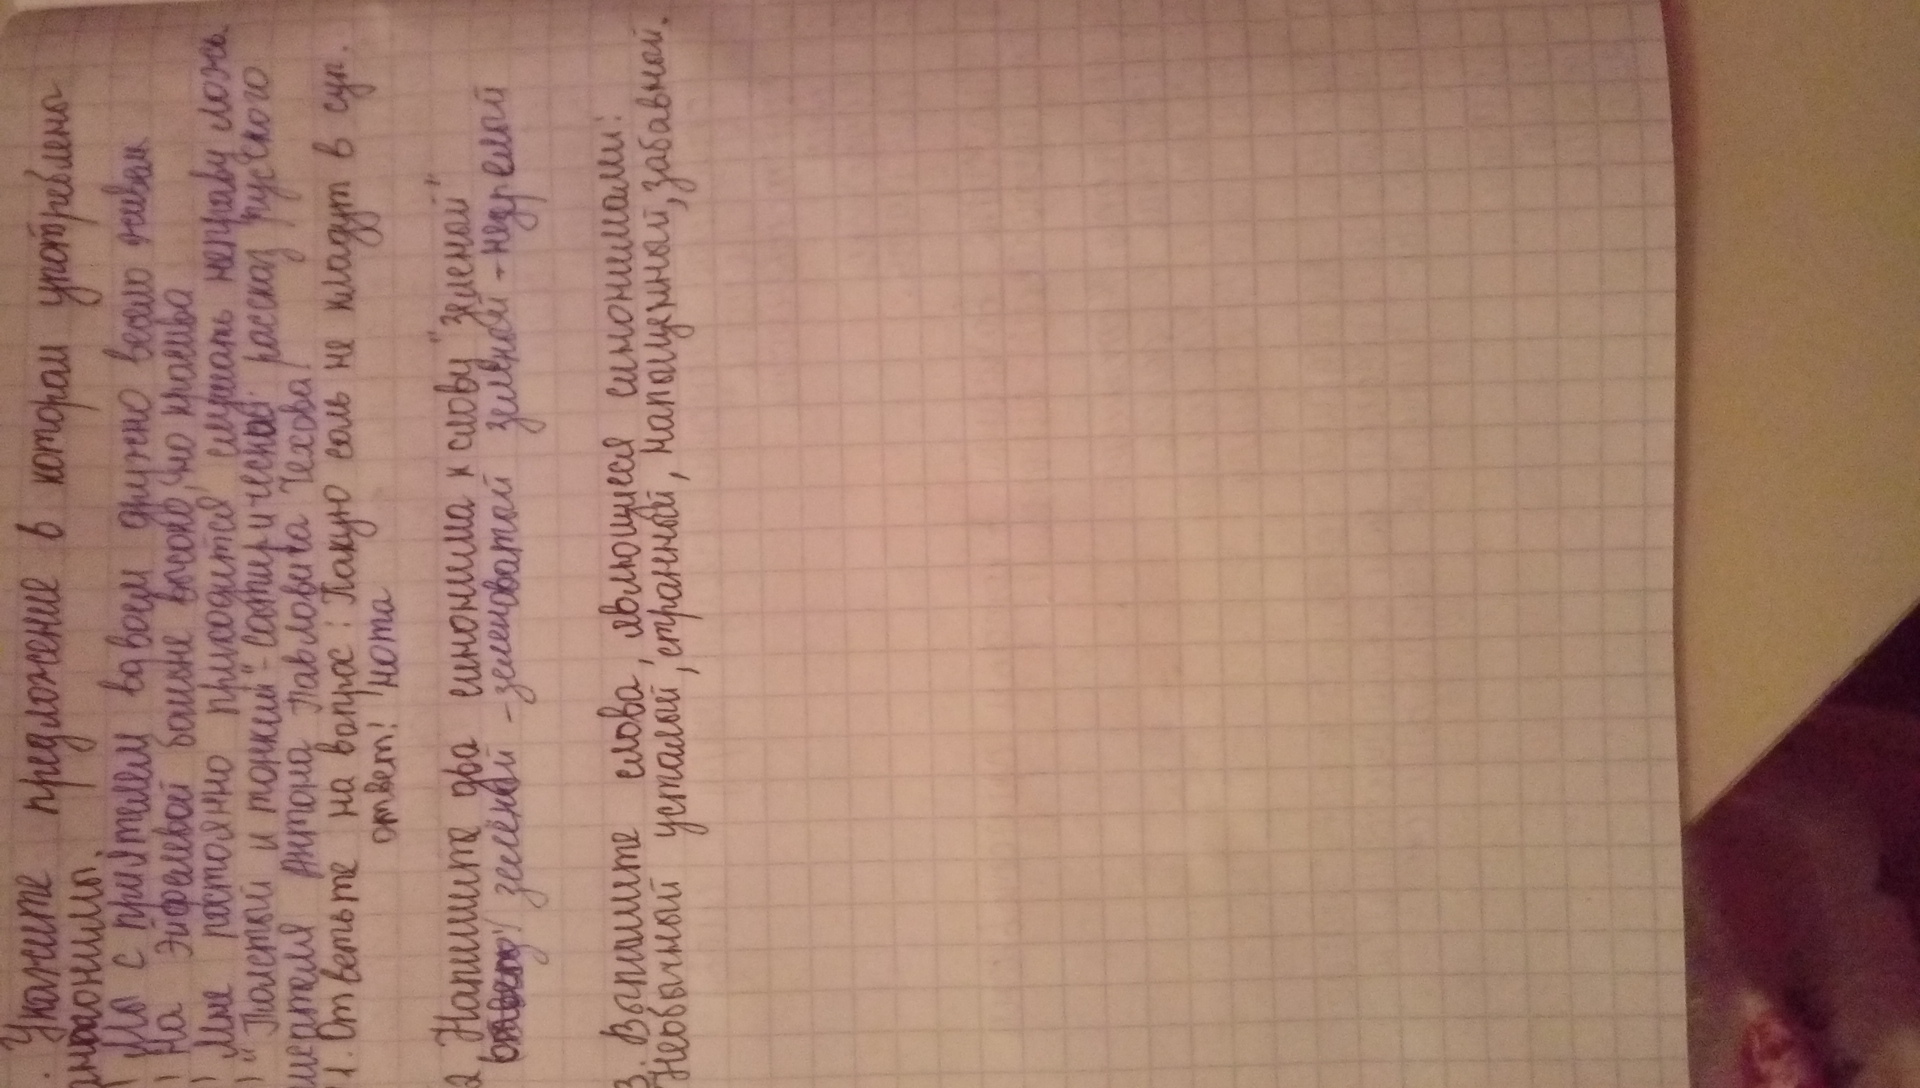 . Укажите предложение в котором употреблено
антонимы.
) Мы с приятелем вдвоем дружно весело живем
) На Эйфелевой башне высоко, но красива
) Мне постоянно приходится слушать неправу ложь.
) "Толстой и тонкий"- сатирический рассказ русского
писателя Антона Павловича Чехова.
1. Ответьте на вопрос: Какую соль не кладут в суп.
ответ! нота
2. Напишите два синонима к слову "зеленый"
ответ! зелёный - зеленоватый зелёный - недрелой
3. Выпишите слова, являющиеся синонимами:
Необычный усталой, странный, напоценной, забавной.